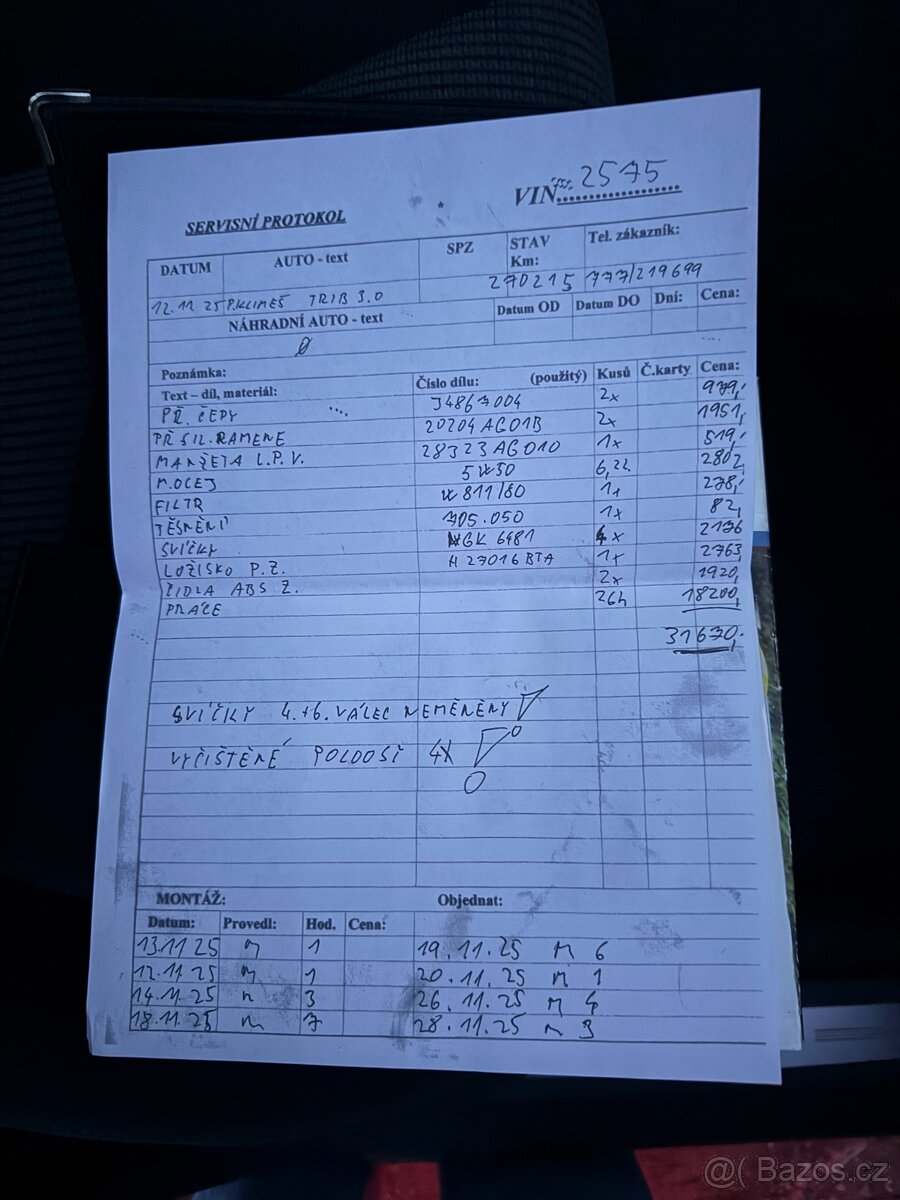 VIN 2575
SERVISNÍ PROTOKOL
DATUM AUTO - text SPZ STAV Km: Tel. zákazník:
12.11.25 P.KLIMEŠ TRIB 3.0 270215 777/219699
NÁHRADNÍ AUTO - text Datum OD Datum DO Dní: Cena:
Ø
Poznámka:
Text – díl, materiál: Číslo dílu: (použitý) Kusů Č.karty Cena:
PŘ. ČEPY 34867004 2x 979,-
PŘ SIL. RAMENE 20204 AG01B 2x 1951,
MANŽETA L.P.V. 28323 AG010 1x 519,-
M.OLEJ 5W30 6,22 2802,
FILTR W811/80 1x 278,-
TĚSNĚNÍ 305.050 1x 82,
SVÍČKY NGK 6481 4x 2176
LOŽISKO P.Z. H 27016 BTA 1x 2763
ČIDLA ABS Z. 2x 1920,
PRÁCE 26h 18200,
31670,-
SVÍČKY 4.+6. VÁLEC NEMĚNĚNY!
VYČIŠTĚNÉ POLOOSY 4X !
MONTÁŽ: Objednat:
Datum: Provedl: Hod. Cena:
13.11 25 M 1 19.11.25 M 6
12.11 25 M 1 20.11.25 M 1
14.11 25 M 3 26.11.25 M 4
18.11.25 M 7 28.11.25 M 3
@( Bazos.cz